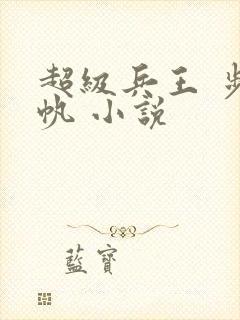 超級兵王
帆 小說
藍寶